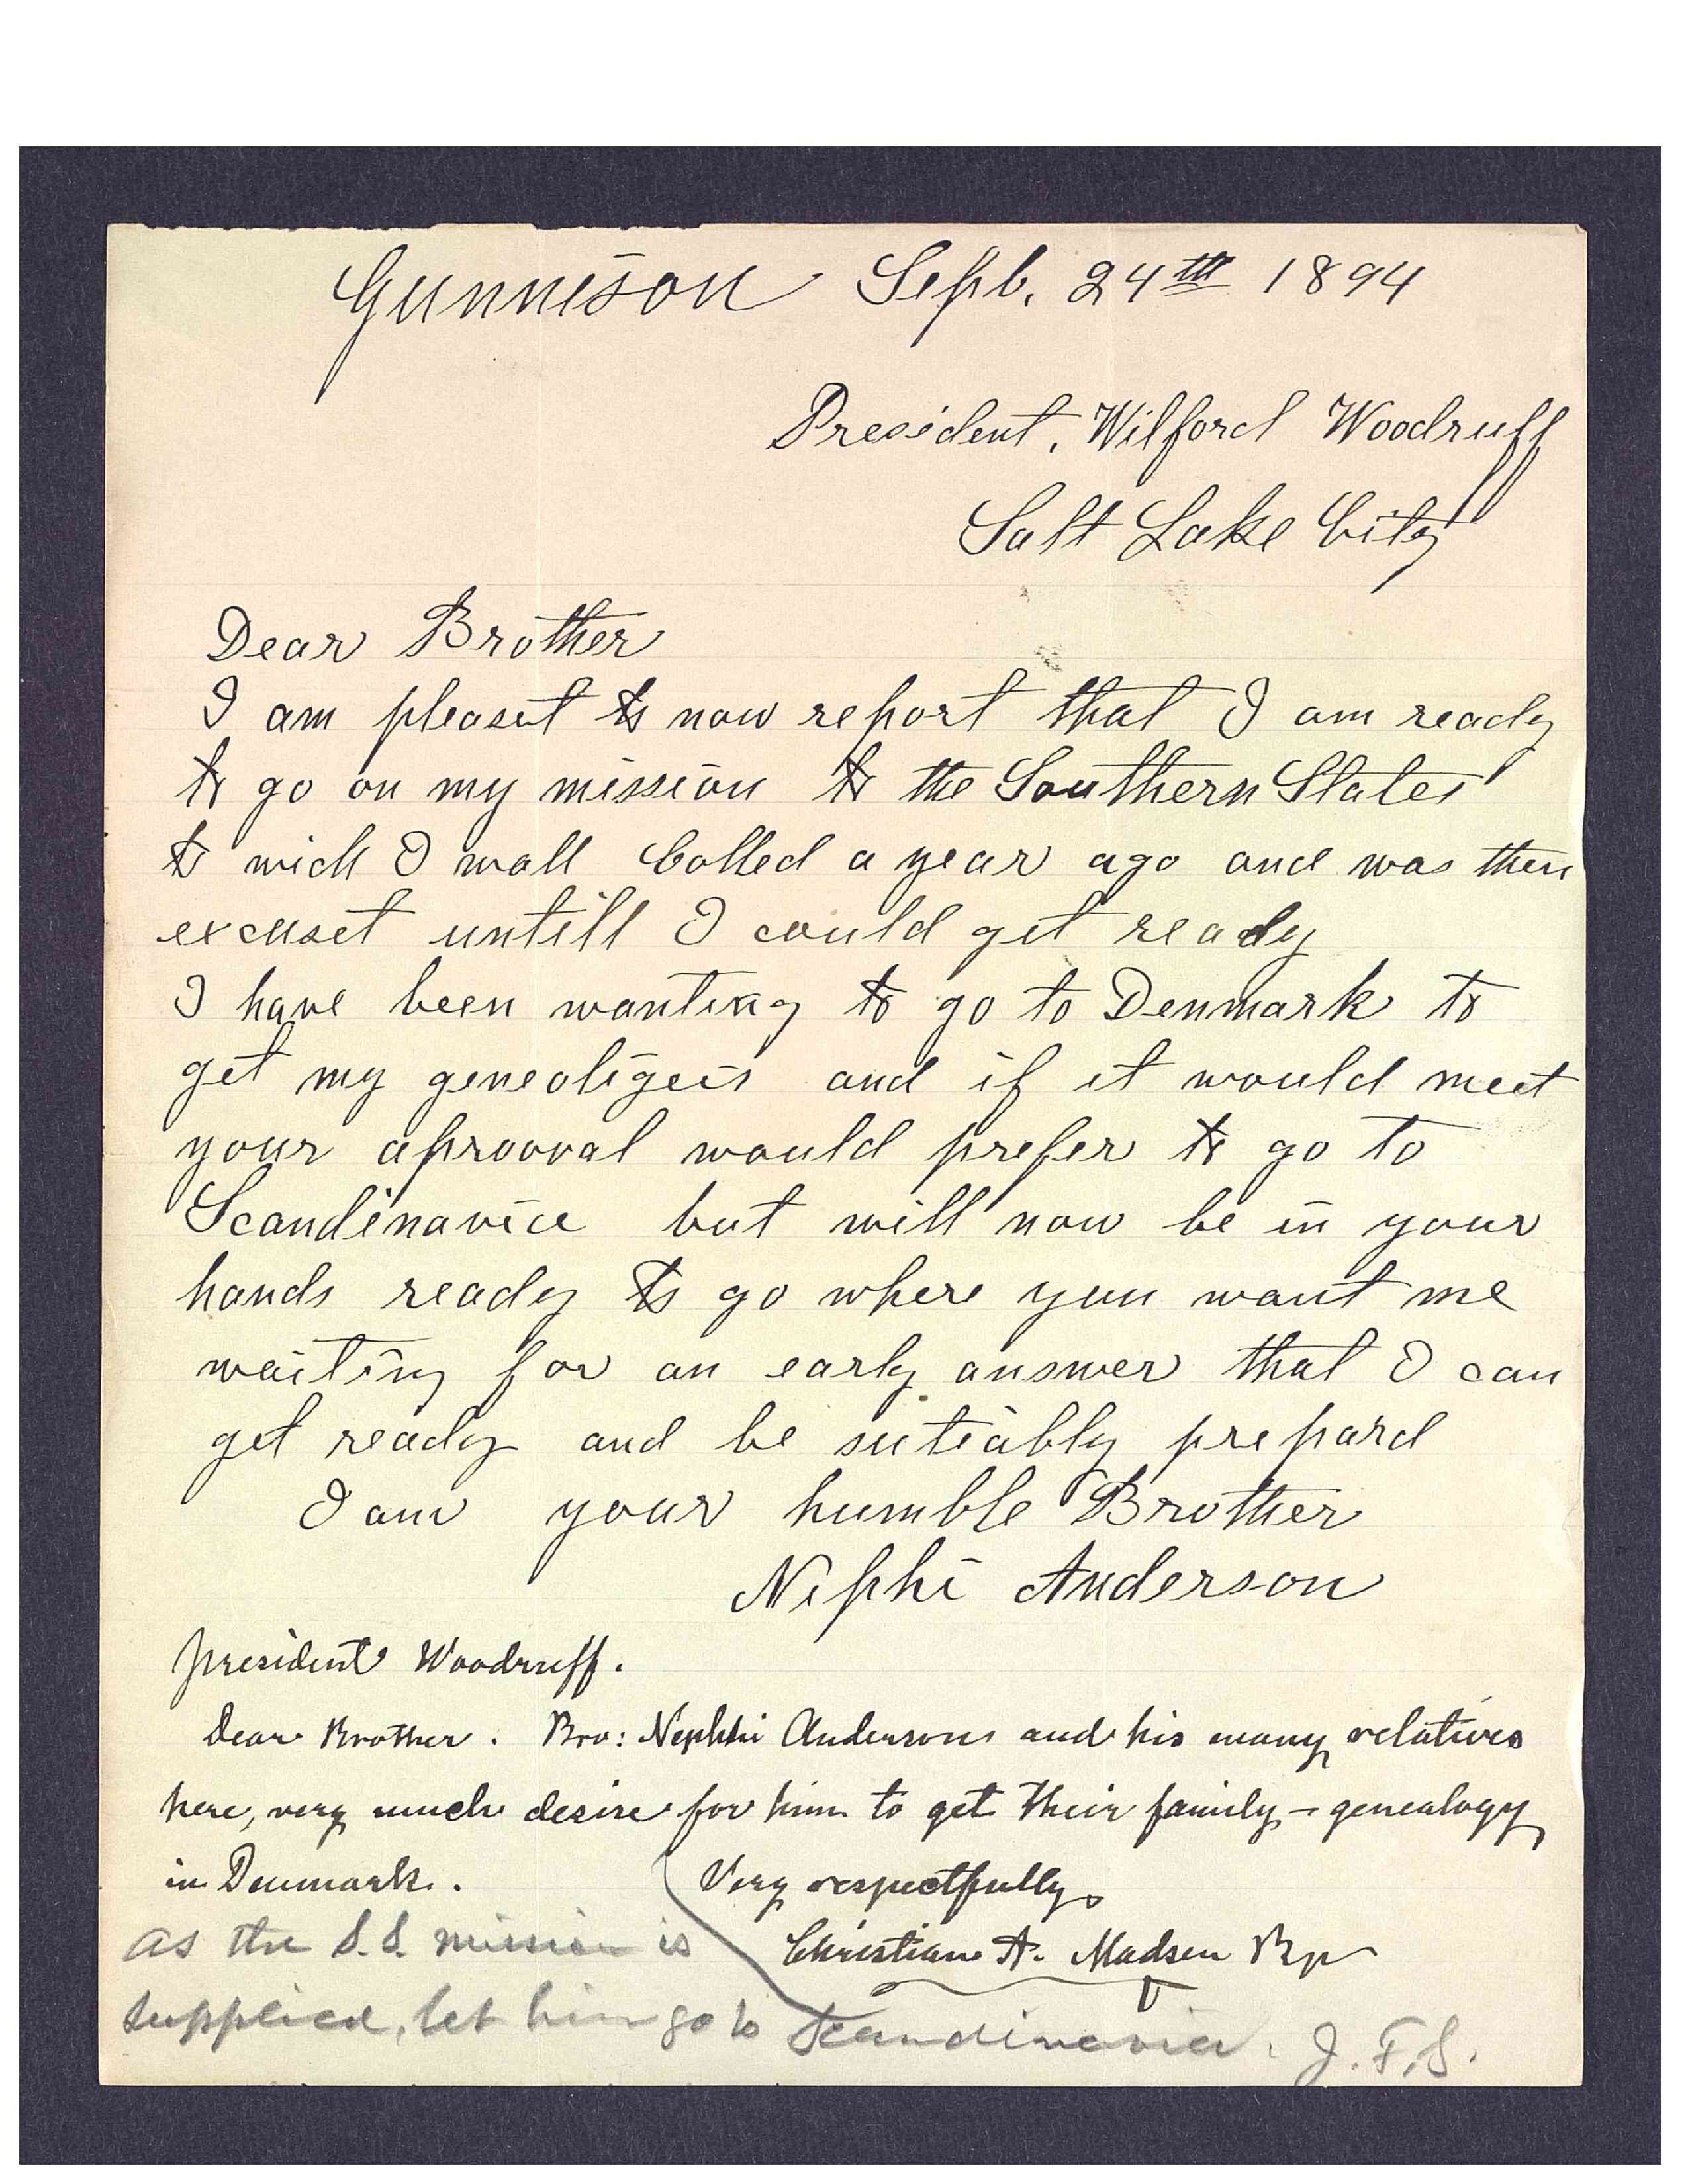 Gunnison Sept. 24th 1894
President. Wilford Woodruff
Salt Lake City
Dear Brother
I am pleaset to now report that I am ready
to go on my mission to the Southern States
to wich I wall Called a year ago and was then
excuset untill I could get ready
I have been wanting to go to Denmark to
get my geneoligeis and if it would meet
your aprooval would prefer to go to
Scandinavia but will now be in your
hands ready to go where you want me
waiting for an early answer that I can
get ready and be sutiably prepard
I am your humble Brother
Nephi Anderson
President Woodruff.
Dear Brother. Bro: Nephi Anderson and his many relatives
here, very much desire for him to get their family-genealogy
in Denmark.
Very respectfully
Christian A. Madsen Bp
As the S.S. mission is
supplied, let him go to Scandinavia. J.F.S.